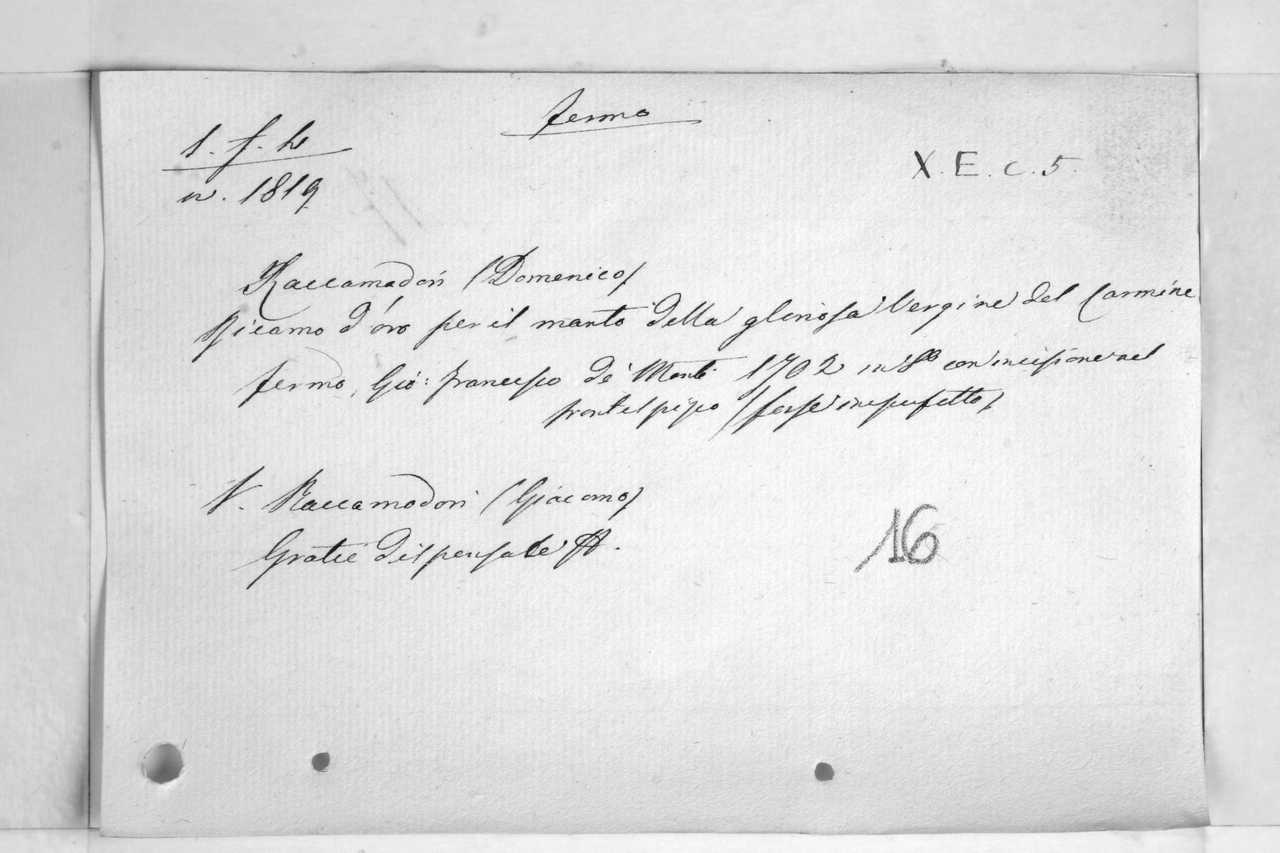 Fermo
1. f. 4
n. 1819
X. E. c. 5.
Raccamadori (Domenico)
Ricamo d'oro per il manto della gloriosa Vergine del Carmine
Fermo, Gio: Francesco de' Monti 1702 in 8.o con incisione nel
frontespizio (forse imperfetto)
V. Raccamadori (Giacomo)
Gratie dispensate
16